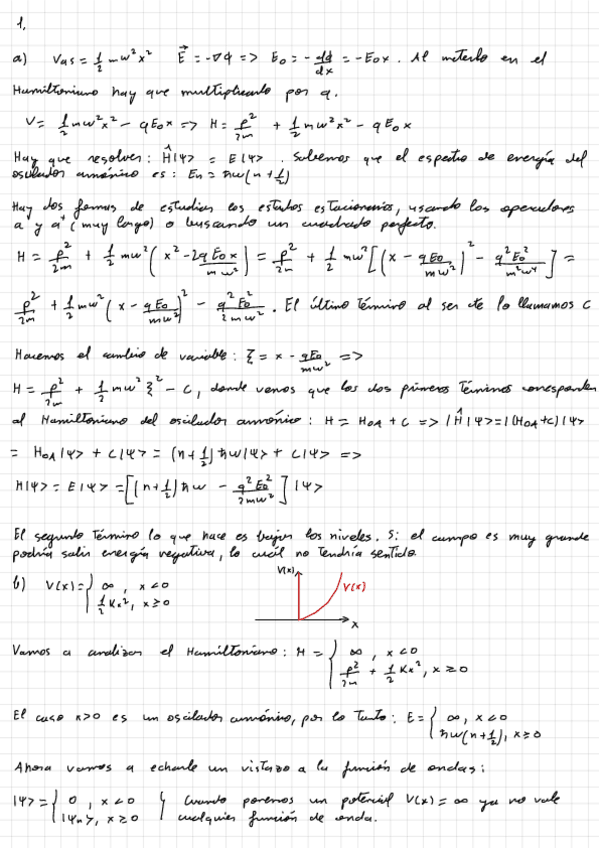 1,
a) Vas = 1/2 mω²x² E⃗ = -∇ϕ => E₀ = -dϕ/dx = -E₀x. Al meterlo en el
Hamiltoniano hay que multiplicarlo por q.
V = 1/2 mω²x² - qE₀x => H = p²/2m + 1/2 mω²x² - qE₀x
Hay que resolver: Ĥ|ψ> = E|ψ>. Sabemos que el espectro de energía del
oscilador armónico es: En = ħω(n + 1/2)
Hay dos formas de estudiar los estados estacionarios, usando los operadores
a y a⁺ (muy largo) o buscando un cuadrado perfecto.
H = p²/2m + 1/2 mω²(x² - 2qE₀x/mω²) = p²/2m + 1/2 mω²[(x - qE₀/mω²)² - q²E₀²/m²ω⁴] =
p²/2m + 1/2 mω²(x - qE₀/mω²)² - q²E₀²/2mω². El último término al ser cte lo llamamos C
Hacemos el cambio de variable: ξ = x - qE₀/mω² =>
H = p²/2m + 1/2 mω²ξ² - C, donde vemos que los dos primeros términos corresponden
al Hamiltoniano del oscilador armónico: H = HOA + C => |Ĥ|ψ> = |(HOA + C)|ψ>
= HOA|ψ> + C|ψ> = (n + 1/2)ħω|ψ> + C|ψ> =>
H|ψ> = E|ψ> = [(n + 1/2)ħω - q²E₀²/2mω²]|ψ>
El segundo término lo que hace es bajar los niveles. Si el campo es muy grande
podría salir energía negativa, lo cuál no tendría sentido.
b) V(x) = { ∞, x<0
1/2 Kx², x≥0
V(x)
V(x)
x
Vamos a analizar el Hamiltoniano: H = { ∞, x<0
p²/2m + 1/2 Kx², x≥0
El caso x>0 es un oscilador armónico, por lo tanto: E = { ∞, x<0
ħω(n + 1/2), x≥0
Ahora vamos a echarle un vistazo a la función de ondas:
|ψ> = { 0, x<0 } Cuando ponemos un potencial V(x) = ∞ ya no vale
|ψn>, x≥0 cualquier función de onda.